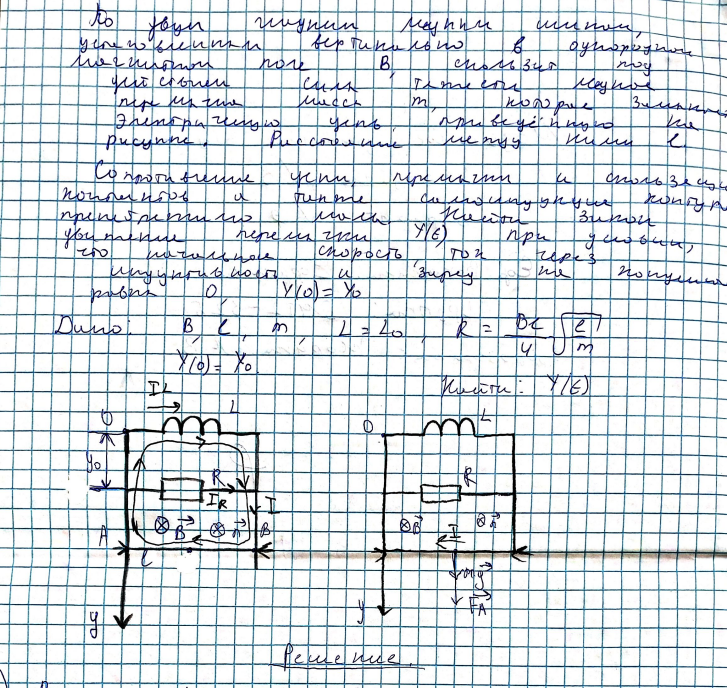 По двум гладким медным шинам,
установленным вертикально в однородном
магнитном поле B, скользит под
действием силы тяжести медная
перемычка массы m, которая замыкает
электрическую цепь, приведённую на
рисунке. Расстояние между ними l.
Сопротивление шин, перемычки и скользящих
контактов а также самоиндукция контура
пренебрежимо малы. Найти закон
движения перемычки Y(t) при условии,
что начальное скорость, ток через
индуктивность и заряд на
равны 0, Y(0) = Y0
Дано: B, l, m, L = L0, R = Bl/4 √
Y(0) = Y0
Найти: Y(t)
IL L
0 L
y0 R IR I
R
A ⊗ B ⊗ n B
⊗B ⊗n I
l
mg
FA
y y
Решение.